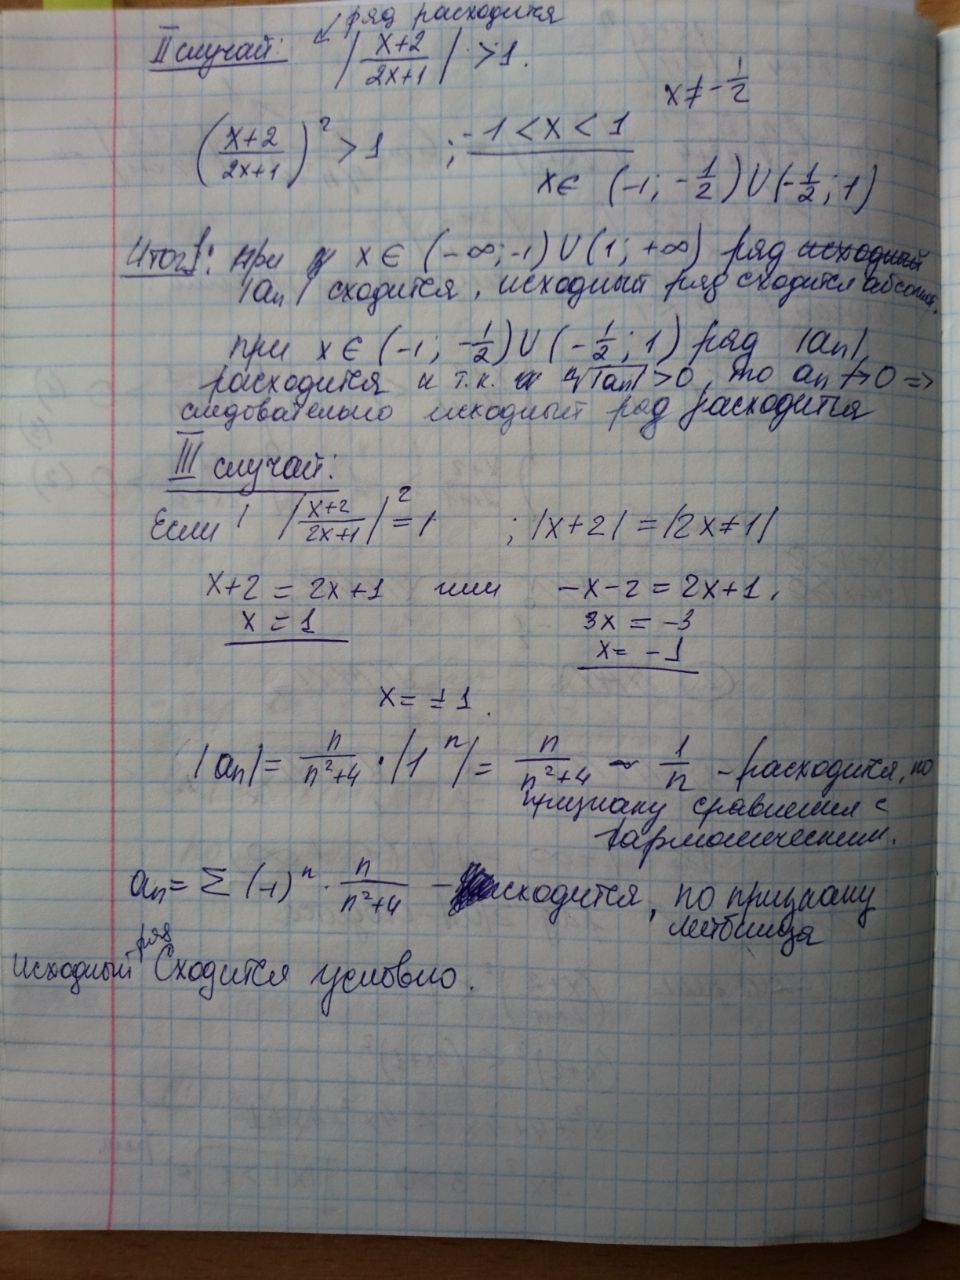 ряд расходится
II случай: |x+2/2x+1| > 1.
x ≠ -1/2
(x+2/2x+1)² > 1 ; -1 < x < 1
x ∈ (-1; -1/2) U (-1/2; 1)
Итог: при x ∈ (-∞; -1) U (1; +∞) ряд исходный
|an| сходится, исходный ряд сходится абсолют.
при x ∈ (-1; -1/2) U (-1/2; 1) ряд |an|
расходится и т.к. ⁿ√|an| > 0, то an ↛ 0 =>
следовательно исходный ряд расходится
III случай:
Если |x+2/2x+1|² = 1 ; |x+2| = |2x+1|
x+2 = 2x+1 или -x-2 = 2x+1,
x = 1 3x = -3
x = -1
x = ± 1.
|an| = n/n²+4 · |1ⁿ| = n/n²+4 ~ 1/n - расходится, по
признаку сравнения с
гармоническим.
an = Σ (-1)ⁿ · n/n²+4 - сходится, по признаку
Лейбница
ряд
Исходный Сходится условно.